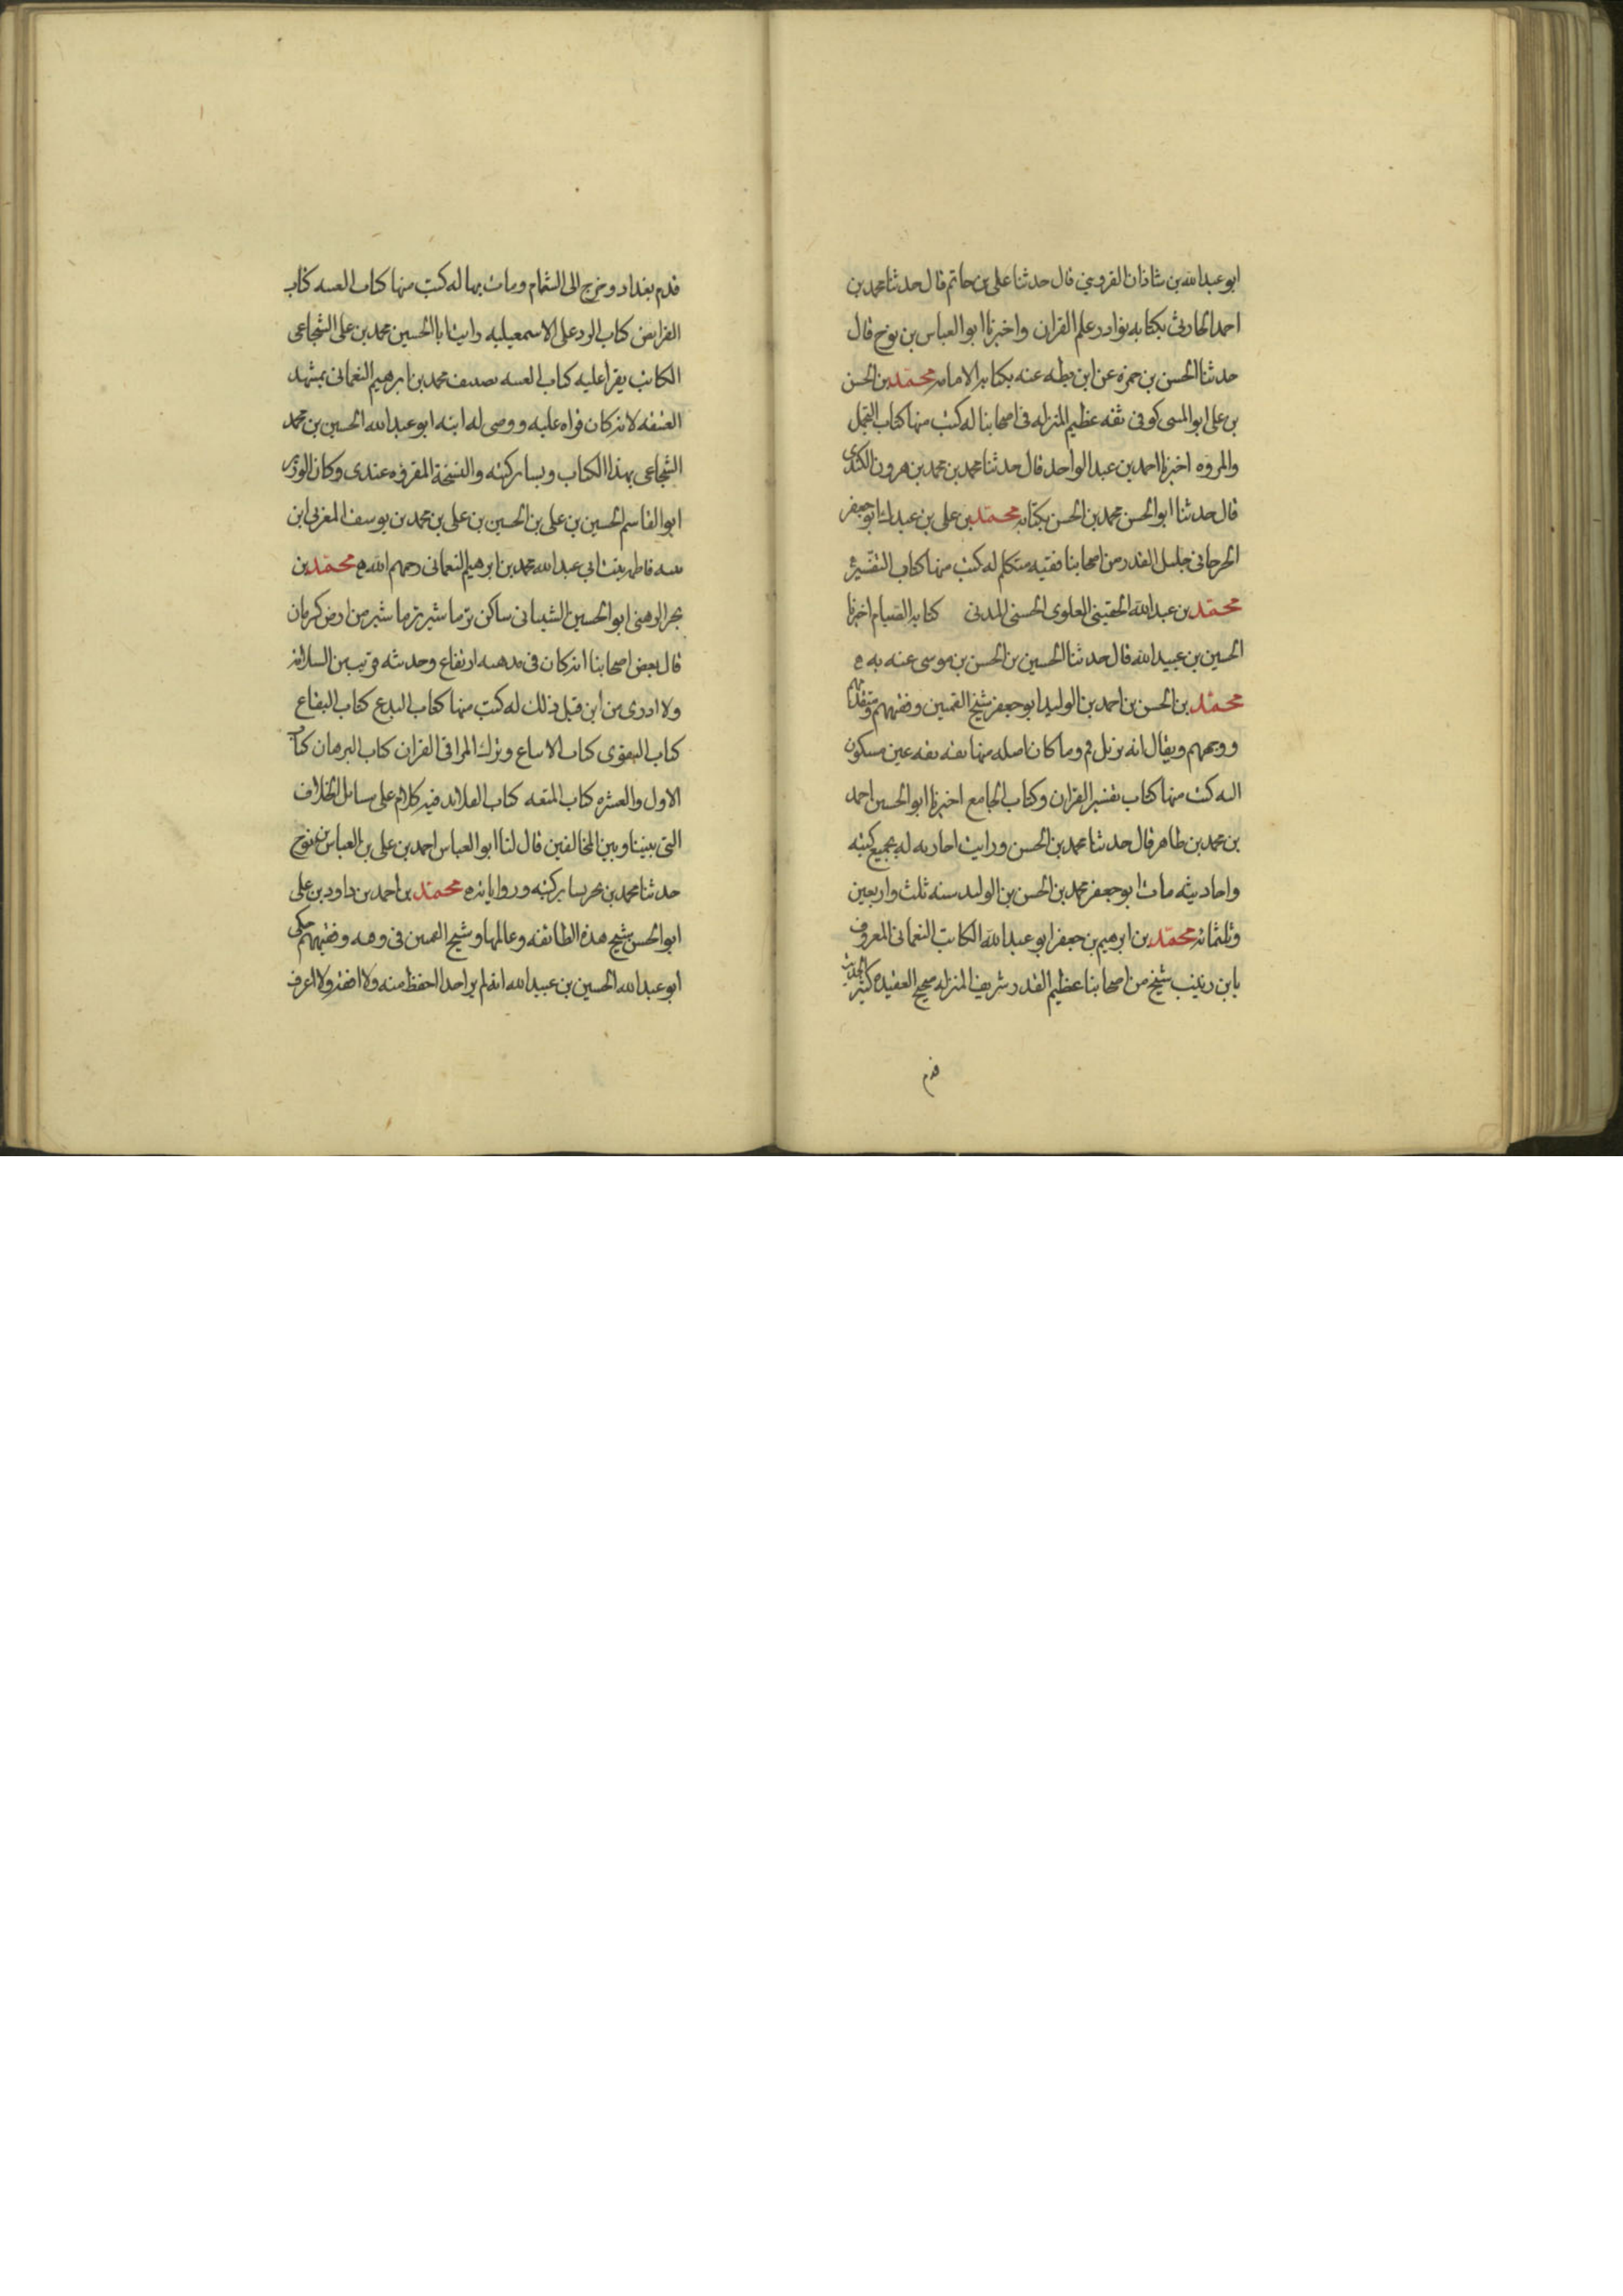 ابو عبدالله بن شاذان القزويني قال حدثنا علي بن حاتم قال حدثنا محمد بن
احمد الحارثي بكتابه نوادر علم القران واخبرنا ابو العباس بن نوح قال
حدثنا الحسن بن حمزه عن ابن بطه عنه بكتابه الامامه محمد بن الحسن
بن علي ابو المسى كوفي ثقه عظيم المنزله في اصحابنا له كتب منها كتاب التجمل
والمروه اخبرنا احمد بن عبد الواحد قال حدثنا محمد بن محمد بن هرون الكندي
قال حدثنا ابو الحسن محمد بن الحسن بكتابه محمد بن علي بن عبدك ابو جعفر
الجرجاني جليل القدر من اصحابنا فقيه متكلم له كتب منها كتاب التفسير
محمد بن عبدالله الحقيني العلوي الحسني المدني كتابه الصيام اخبرنا
الحسين بن عبيدالله قال حدثنا الحسين بن الحسن بن موسى عنه به ه
محمد بن الحسن بن احمد بن الوليد ابو جعفر شيخ القميين وفقيههم ومتقدمهم
ووجههم ويقال انه نزيل قم وما كان اصله منها ثقه ثقه عين مسكون
اليه كتب منها كتاب تفسير القران وكتاب الجامع اخبرنا ابو الحسين احمد
بن محمد بن طاهر قال حدثنا محمد بن الحسن ورايت اجازته له بجميع كتبه
واحاديثه مات ابو جعفر محمد بن الحسن بن الوليد سنه ثلث واربعين
وثلثمائه محمد بن ابرهيم بن جعفر ابو عبدالله الكاتب النعماني المعروف
بابن زينب شيخ من اصحابنا عظيم القدر شريف المنزله صحيح العقيده كثير الحديث
قدم
قدم بغداد وخرج الى الشام ومات بها له كتب منها كتاب الغيبه كتاب
الفرايض كتاب الرد على الاسمعيليه رايت ابا الحسين محمد بن علي الشجاعي
الكاتب يقرا عليه كتاب الغيبه تصنيف محمد بن ابرهيم النعماني بمشهد
العتيقه لانه كان قراه عليه ووصى له ابنه ابو عبدالله الحسين بن محمد
الشجاعي بهذا الكتاب وبساير كتبه والنسخة المقروه عندي وكان الوزير
ابو القاسم الحسين بن علي بن الحسين بن علي بن محمد بن يوسف المغربي ابن
بنته فاطمه بنت ابي عبدالله محمد بن ابرهيم النعماني رحمهم الله ه محمد بن
بحر الرهني ابو الحسين الشيباني ساكن نرماشير من ارض كرمان
قال بعض اصحابنا انه كان في مذهبه ارتفاع وحديثه قريب من السلامه
ولا ادري من اين قيل ذلك له كتب منها كتاب البدع كتاب البقاع
كتاب التقوى كتاب الاتباع وترك المرا في القران كتاب البرهان كتاب
الاول والعشره كتاب المتعه كتاب القلائد فيه كلام على مسائل الخلاف
التي بيننا وبين المخالفين قال لنا ابو العباس احمد بن علي بن العباس بن نوح
حدثنا محمد بن بحر بساير كتبه ورواياته ه محمد بن احمد بن داود بن علي
ابو الحسن شيخ هذه الطائفه وعالمها وشيخ القميين في وقته وفقيههم حكى
ابو عبدالله الحسين بن عبيدالله انه لم ير احدا احفظ منه ولا افقه ولا اعرف